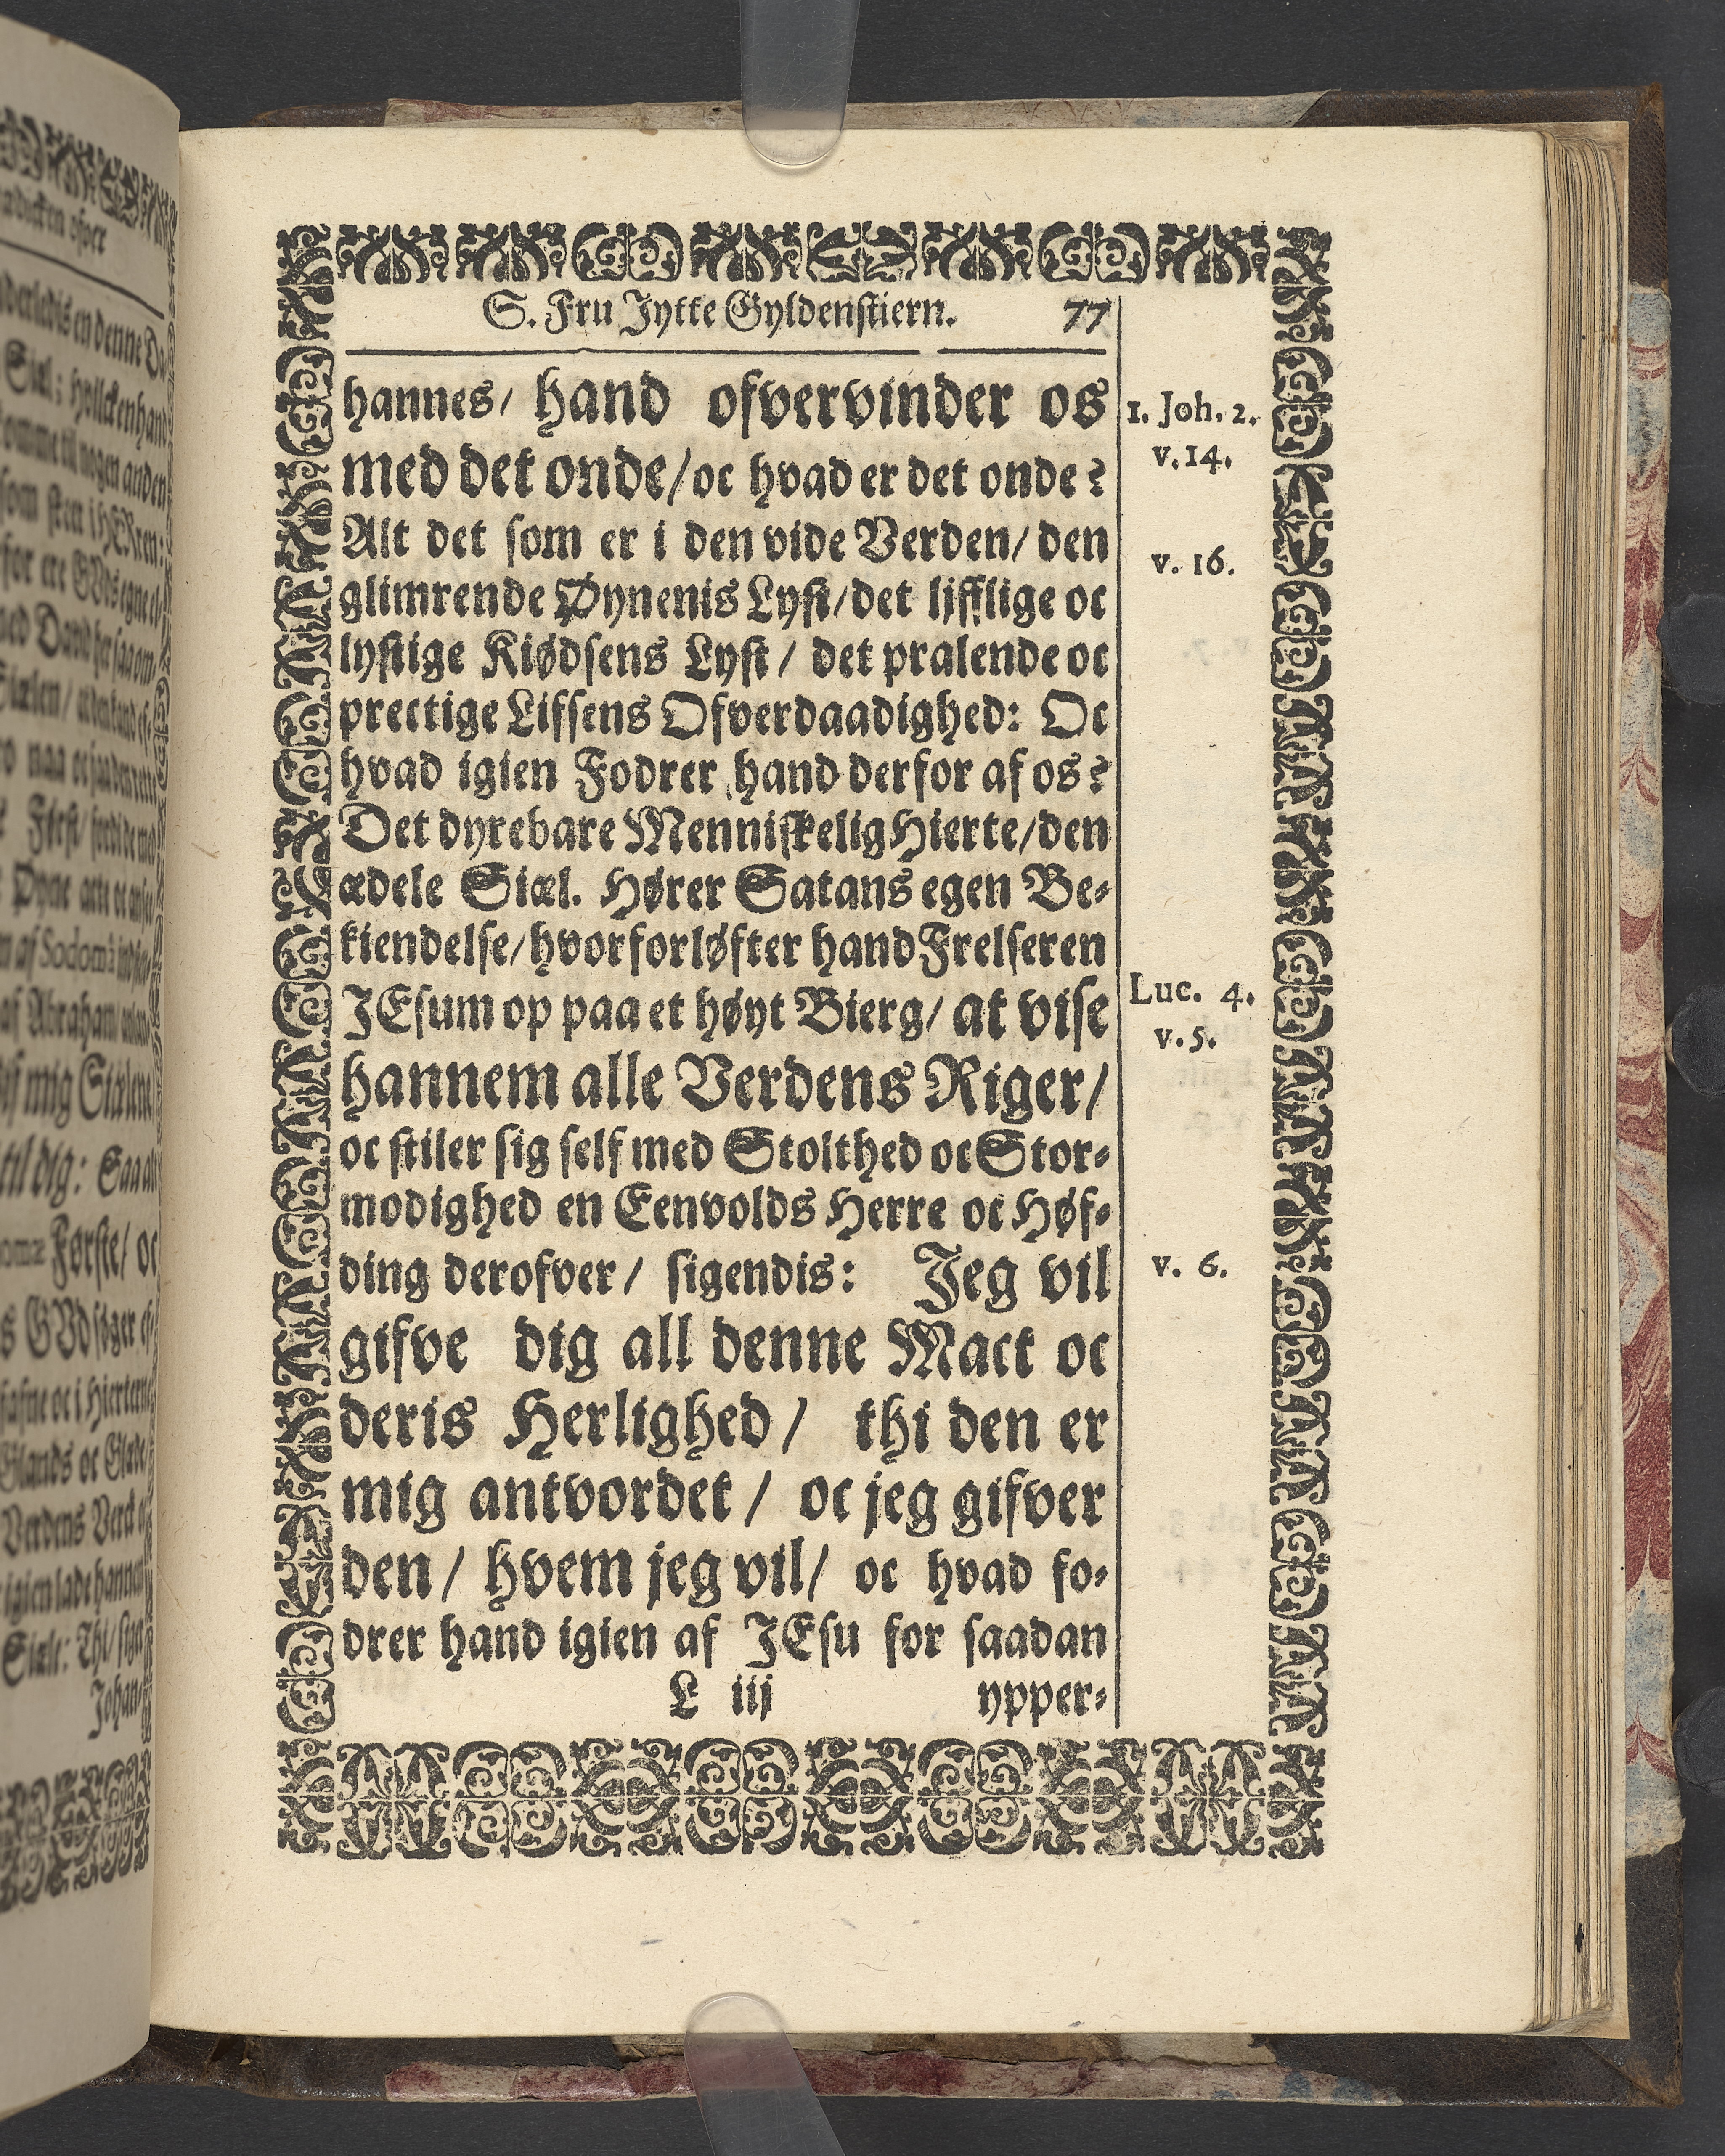 S. Fru Jytte Gyldenstiern. 77
hannes/ hand ofvervinder os
med det onde/oc hvad er det onde?
Alt det som er i den vide Verden/ den
glimrende Øynenis Lyst/det lifflige oc
lystige Kiødsens Lyst/ det pralende oc
prectige Lifsens Ofverdaadighed: Oc
hvad igien Fodrer hand derfor af os?
Det dyrebare Menniskelig Hierte/den
ædele Siæl. Hører Satans egen Be-
kiendelse/hvorfor løfter hand Frelseren
JEsum op paa et høyt Bierg/ at vise
hannem alle Verdens Riger/
oc stiler sig self med Stolthed oc Stor-
modighed en Eenvolds Herre oc Høf-
ding derofver/ sigendis: Jeg vil
gifve dig all denne Mact oc
deris Herlighed/ thi den er
mig antvordet/ oc jeg gifver
den/ hvem jeg vil/ oc hvad fo-
drer hand igien af JEsu for saadan
L iij ypper-
1. Joh. 2.
v. 14.
v. 16.
Luc. 4.
v. 5.
v. 6.